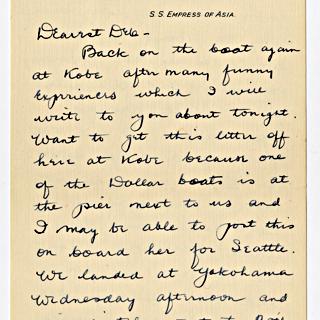 S. S. EMPRESS OF ASIA.
Dearest Deb-
Back on the boat again
at Kobe after many funny
experiences which I will
write to you about tonight.
Want to get this letter off
here at Kobe because one
of the Dollar boats is at
the pier next to us and
I may be able to post this
on board her for Seattle.
We landed at Yokohama
Wednesday afternoon and